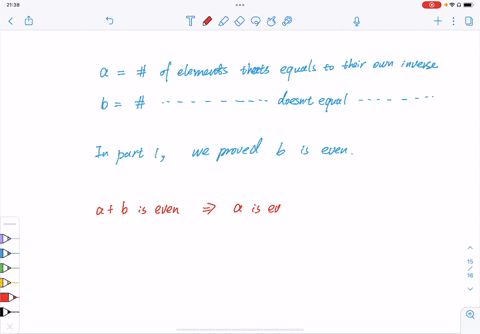 21:38
a = # of elements thats equals to their own inverse
b = # ---------- doesnt equal --------
In part 1, we proved b is even.
a + b is even ⇒ a is ev
15
/
16